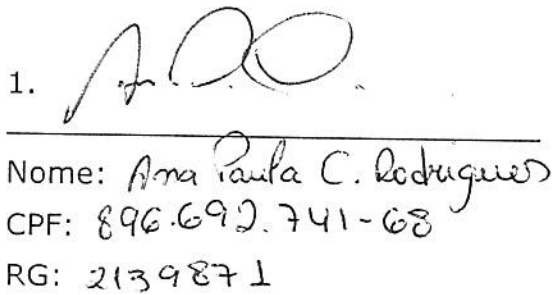 1.
Nome: Ana Paula C. Rodrigues
CPF: 896.692.741-68
RG: 2139871